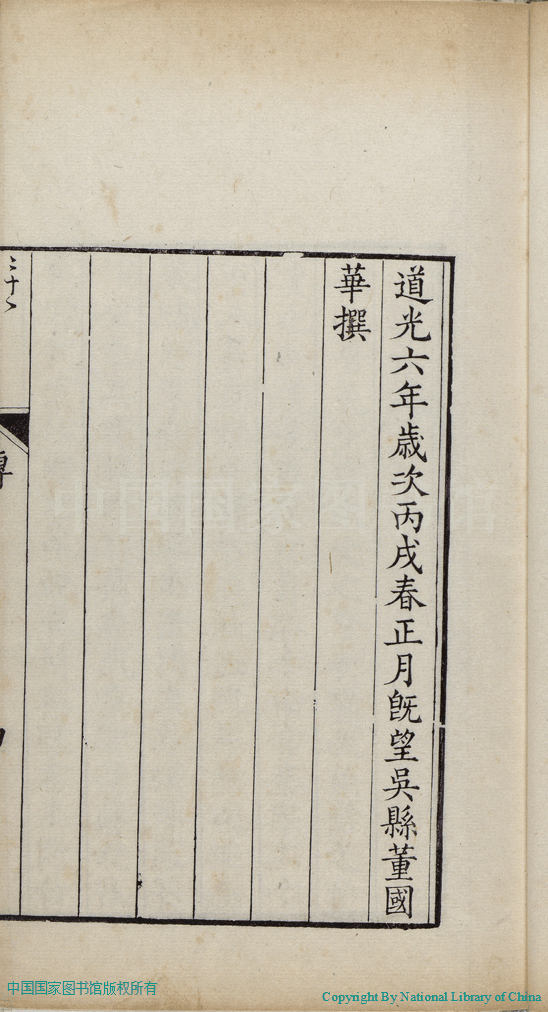 道光六年歲次丙戌春正月旣望吳縣董國
華撰
中国国家图书馆版权所有
Copyright By National Library of China